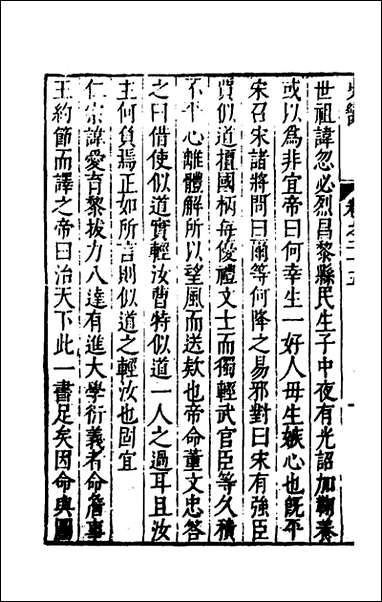 世祖諱忽必烈昌黎縣民生子中夜有光詔加鞠養
或以為非宜帝曰何幸生一好人毋生嫉心也旣平
宋召宋諸將問曰爾等何降之易邪對曰宋有強臣
賈似道擅國柄每優禮文士而獨輕武官臣等久積
不平心離體解所以望風而送欵也帝命董文忠答
之曰借使似道實輕汝曹特似道一人之過耳且汝
主何負焉正如所言則似道之輕汝也固宜
仁宗諱愛育黎拔力八達有進大學衍義者命詹事
王約節而譯之帝曰治天下此一書足矣因命與圖
卷之二十五